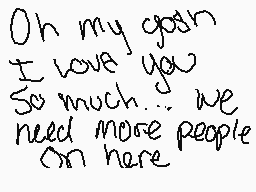 Oh my gosh
I love you
so much... we
need more people
on here